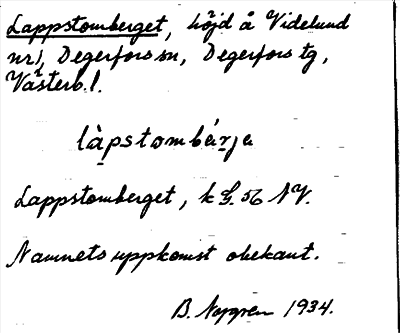 Lappstomberget, höjd å Videlund
nr 1, Degerfors sn, Degerfors tg,
Västerb. l.
làpstombárja
Lappstomberget, k bl. 56 NV.
Namnets uppkomst obekant.
B. Nygren 1934.